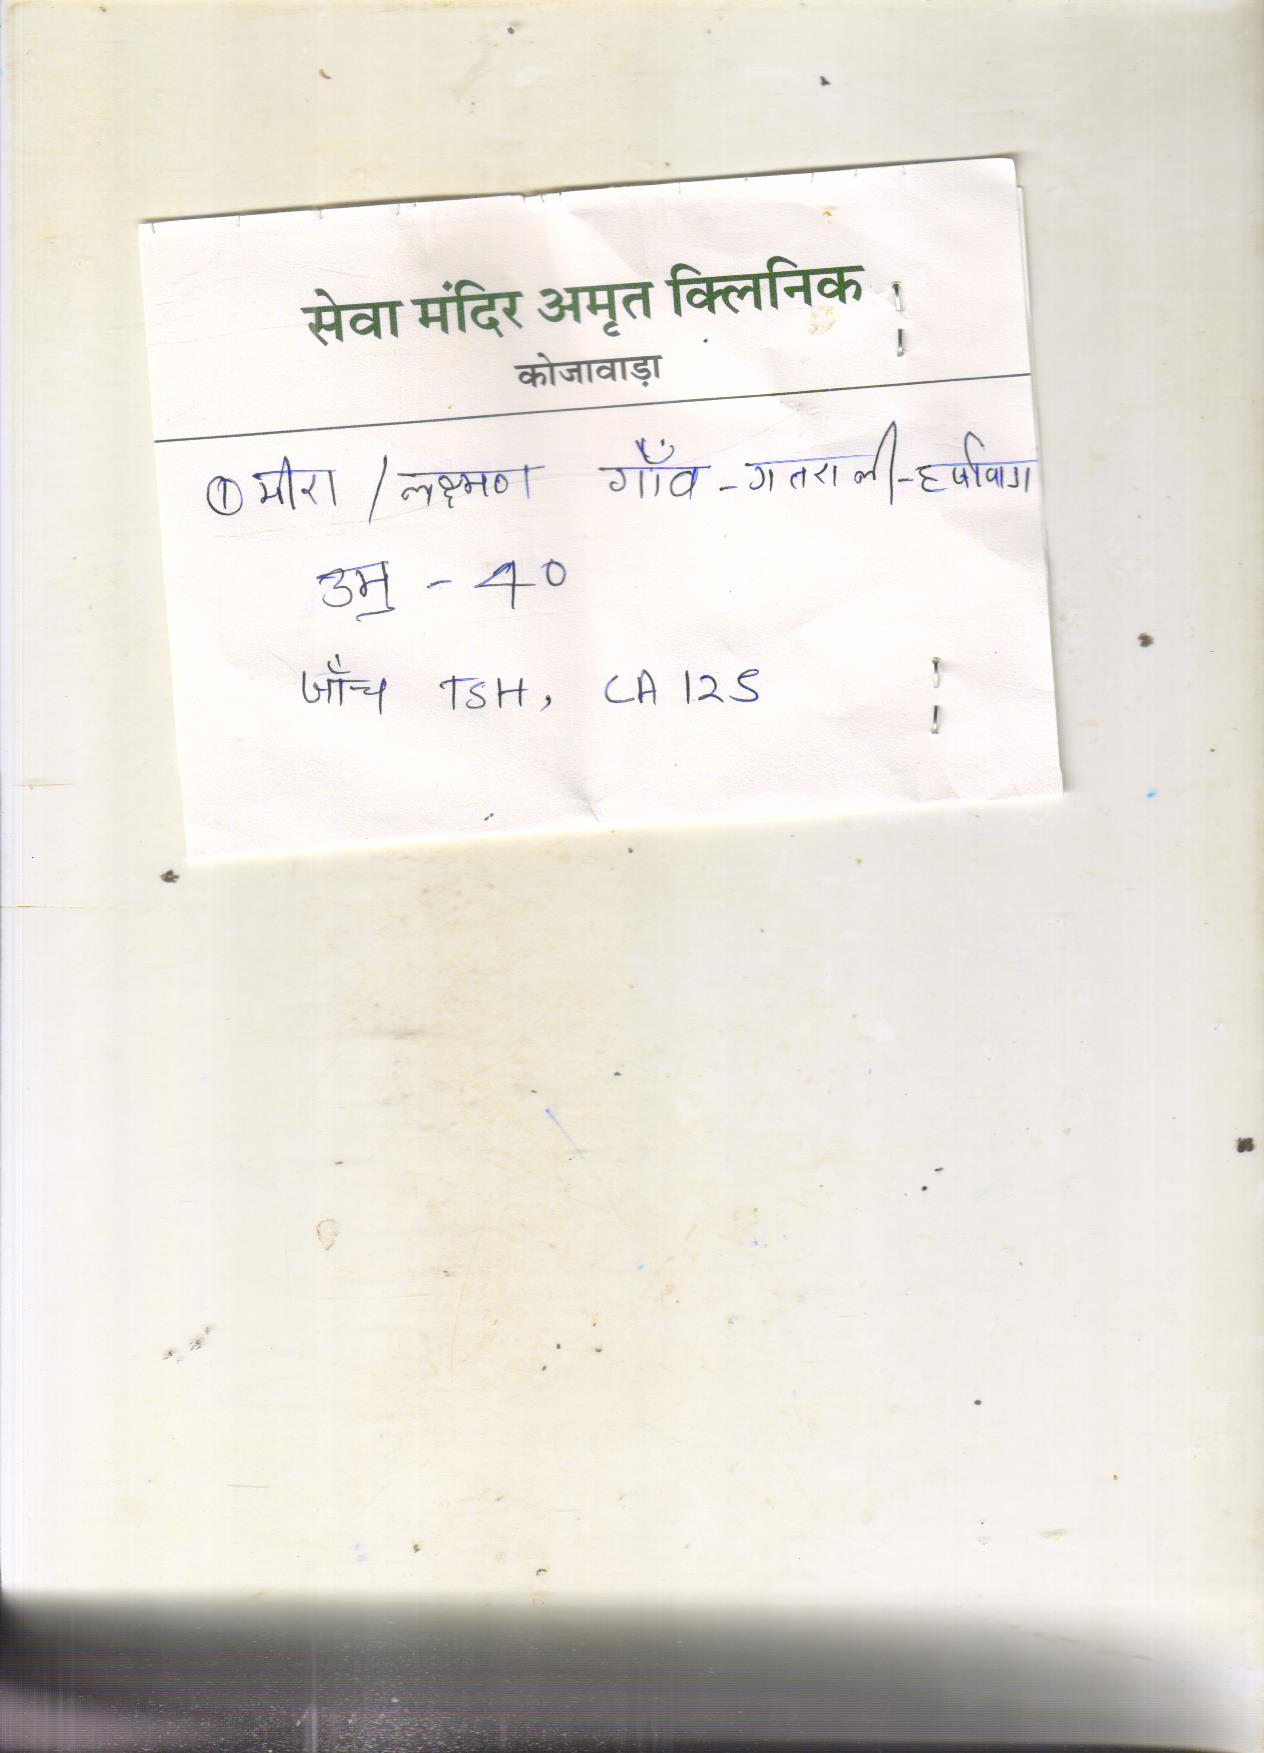 सेवा मंदिर अमृत क्लिनिक
कोजावाड़ा
① मीरा / लक्ष्मण गाँव - गतराली -
उम्र - 40
जाँच TSH, CA 125